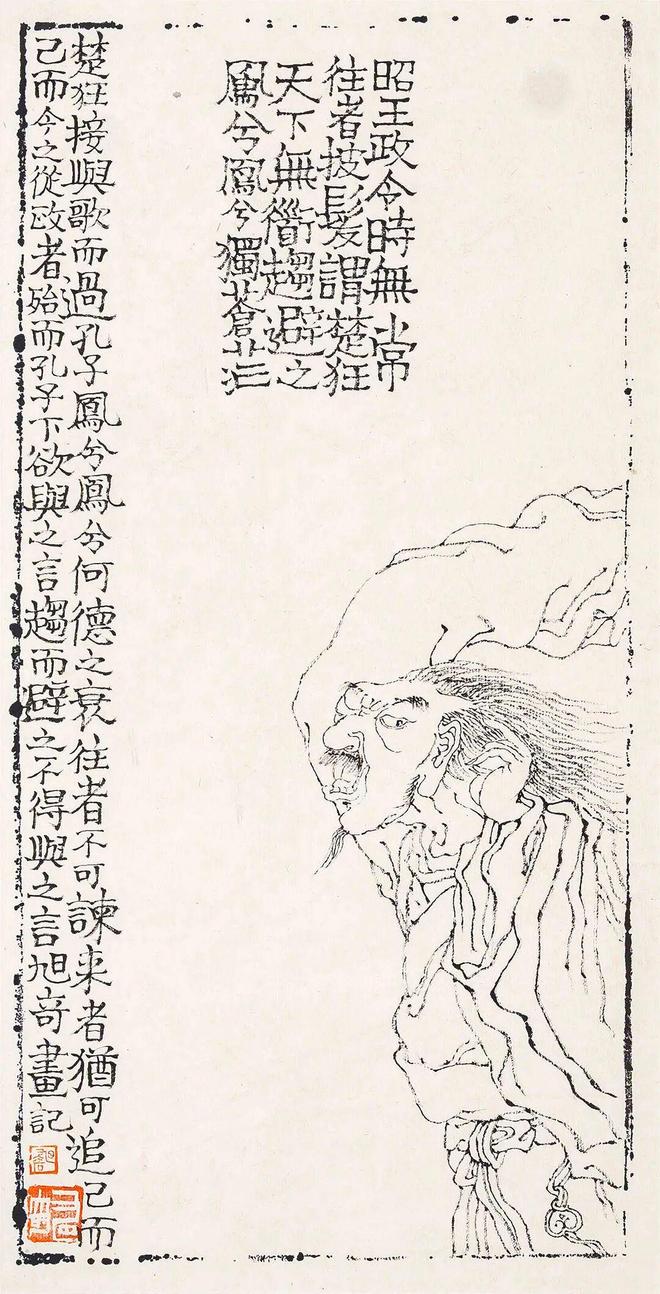 昭王政令時無常
往者披髮謂楚狂
天下無衜趨避之
鳳兮鳳兮獨蒼茫
楚狂接與歌而過孔子鳳兮鳳兮何德之衰往者不可諫来者猶可追己而
己而今之從政者殆而孔子下欲與之言趨而避之不得與之言旭奇畫記